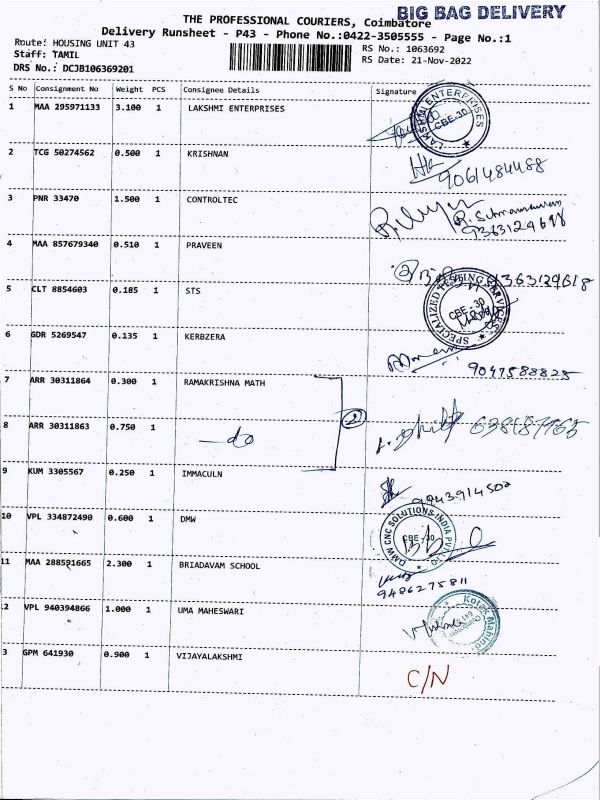 BIG BAG DELIVERY
THE PROFESSIONAL COURIERS, Coimbatore
Delivery Runsheet - P43 - Phone No.:0422-3505555 - Page No.:1
Route: HOUSING UNIT 43
RS No.: 1063692
Staff: TAMIL
RS Date: 21-Nov-2022
DRS No.: DCJB106369201
S No Consignment No Weight PCS Consignee Details Signature
1 MAA 295971133 3.100 1 LAKSHMI ENTERPRISES
LAKSHMI ENTERPRISES CBE-30
2 TCG 50274562 0.500 1 KRISHNAN
9061484488
3 PNR 33470 1.500 1 CONTROLTEC
9363129698
4 MAA 857679340 0.510 1 PRAVEEN
5 CLT 8854603 0.185 1 STS
SPECIALIZED TESTING SERVICES CBE-30
6 GDR 5269547 0.135 1 KERBZERA
9047588825
7 ARR 30311864 0.300 1 RAMAKRISHNA MATH
2
8 ARR 30311863 0.750 1 do
9 KUM 3305567 0.250 1 IMMACULN
9943914502
10 VPL 334872490 0.600 1 DMW
DMW CNC SOLUTIONS INDIA PVT LTD CBE-30
11 MAA 288591665 2.300 1 BRIADAVAM SCHOOL
9486275811
2 VPL 940394866 1.000 1 UMA MAHESWARI
Kotak Mahind
3 GPM 641930 0.900 1 VIJAYALAKSHMI
C/N